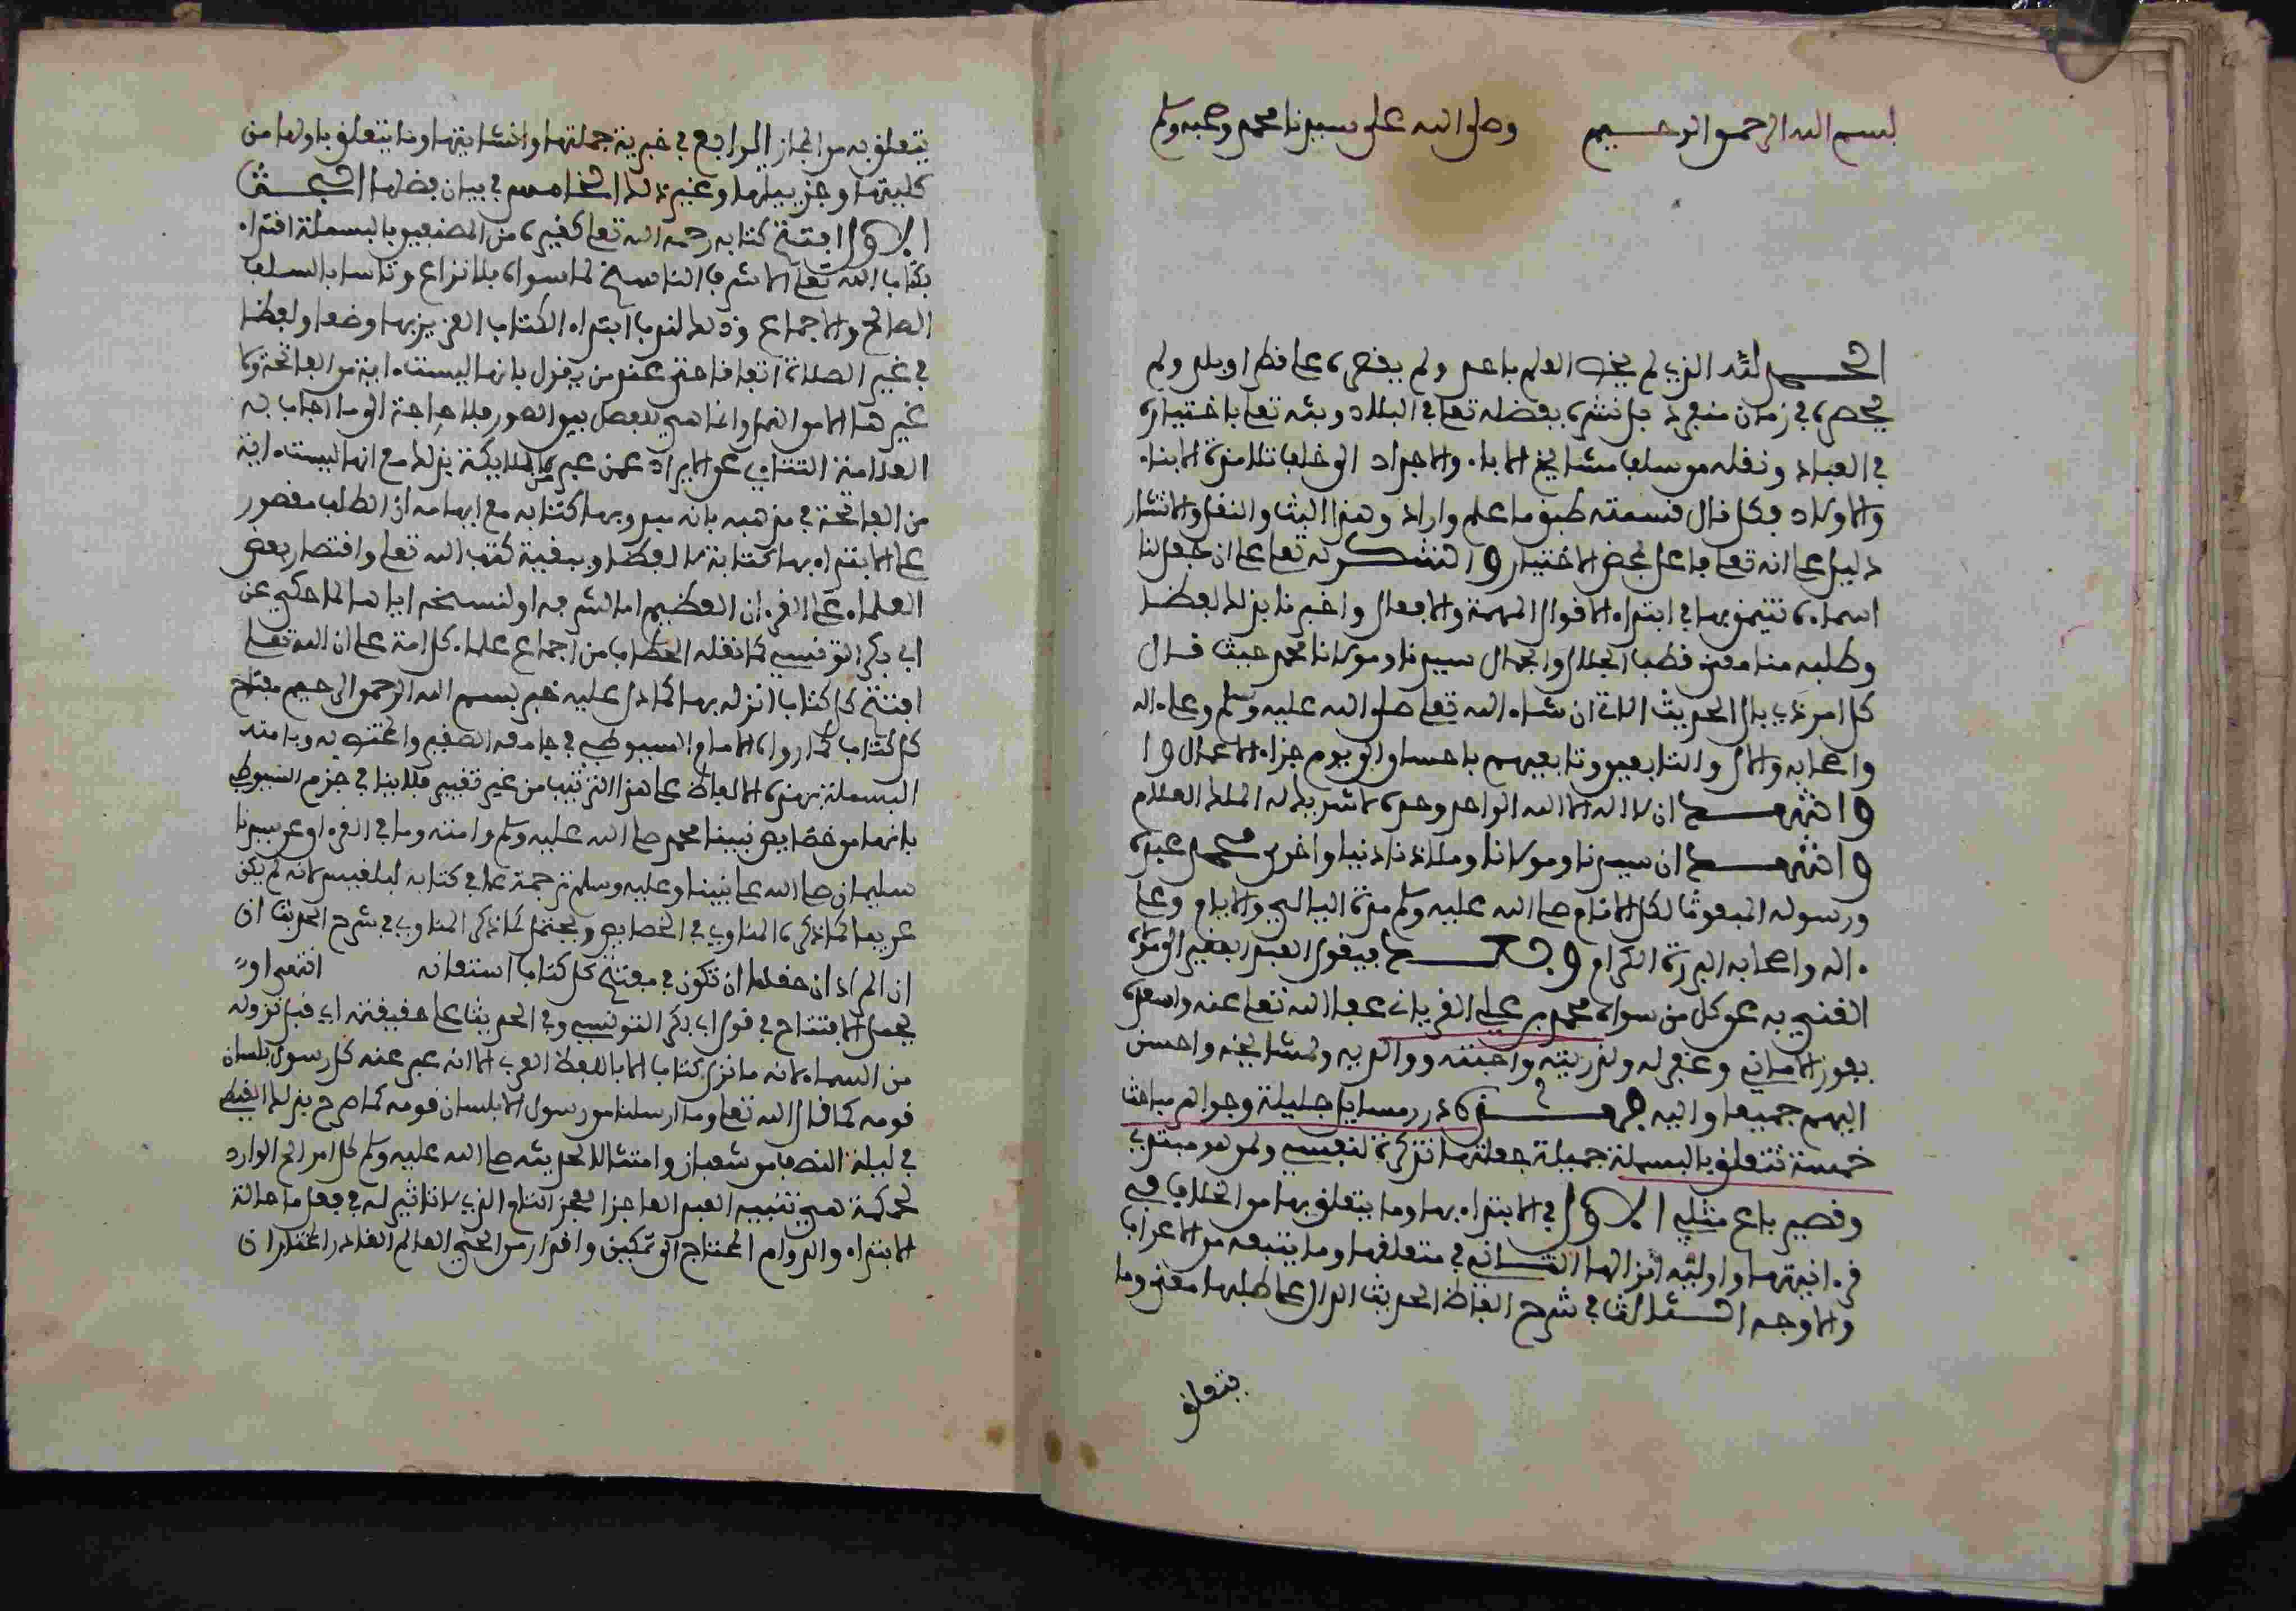 بسم الله الرحمن الرحيم وصلى الله على سيدنا محمد وصحبه وسلم
الحمد لله الذي لم يخص العلم باحد ولم يقصره على قطر او بلد ولم
يحصره في زمان منفرد بل نشره بفضله تعلى في البلاد وبثه تعلى باختياره
في العباد ونقله من سلف مشايخ الاباء والاجداد الى خلف تلامذة الابناء
والاولاد فكل نال قسمته طبق ما علم واراد وهذا البث والنقل والانتشار
دليل على انه تعلى فاعل بمحض الاختيار والشكر له تعلى على ان جعل لنا
اسماءه نتيمن بها في ابتداء الاقوال المهمة والافعال واخبرنا بذلك لفظا
وطلبه منا معنى قطب الجلال والجمال سيدنا ومولانا محمد حيث قال
كل امر ذي بال الحديث الاتي ان شاء الله تعلى صلى الله عليه وسلم وعلى ءاله
واصحابه والال والتابعين وتابعيهم باحسان الى يوم جزاء الاعمال وا
واشهد ان لا اله الا الله الواحد وحده لا شريك له الملك العلام
واشهد ان سيدنا ومولانا وملاذنا دنيا واخرى محمد عبده
ورسوله المبعوث لكل الانام صلى الله عليه وسلم مدة الليالي والايام وعلى
ءاله واصحابه البررة الكرام وبعد فيقول العبد الفقير الى مولاه
الغني به عن كل من سواه محمد بن علي الغرياني عفا الله تعلى عنه واسعده
بفوز الاماني وغفر له ولذريته واحبته ووالديه ولمشايخه واحسن
اليهم جميعا واليه هذه درر مسايل جليلة وجواهر مباحث
خمسة تتعلق بالبسملة جميلة جعلتها تذكرة لنفسي ولمن هو مبتدي
وقصير باع مثلي الاول في الابتداء بها وما يتعلق بها من الخلاف في
قرءانيتها واولية انزالها الثاني في متعلقها وما يتبعه من الاعراب
والاوجه الثالث في شرح الفاظ الحديث الدال على طلبها معنى وما
يتعلق
يتعلق به من المجاز الرابع في خبرية جملتها وانشايتها وما يتعلق باولها من
كليتها وجزييتها وغير ذلك الخامس في بيان فضلها البحث
الاول افتتح كتابه رحمه الله تعلى كغيره من المصنفين بالبسملة اقتداء
بكتاب الله تعلى الاشرف الناسخ لما سواه بلا نزاع وتاسيا بالسلف
الصالح والاجماع وذلك لندب ابتداء الكتاب العزيز بها وضعا ولفظا
في غير الصلاة اتفاقا حتى عند من يقول بانها ليست ءاية من الفاتحة ولا
غيرها الا من النمل وانما هي للفصل بين السور فلا حاجة الى ما اجاب به
العلامة التتايي عن الايراد عمن عبر من المالكية بذلك مع انها ليست ءاية
من الفاتحة في مذهبه بانه مبدوء بها كتابه مع ايهامه ان الطلب مقصور
على الابتداء بها كتابة لا لفظا وببقية كتب الله تعلى واقتصار بعض
العلماء على القرءان العظيم اما لشرفه او لنسخه اياها لما حكي عن
ابي بكر التونسي كما نقله الحطاب من اجماع علماء كل امة على ان الله تعلى
افتتح كل كتاب انزله بها كما دل عليه خبر بسم الله الرحمن الرحيم مفتاح
كل كتاب كما رواه الامام السيوطي في جامعه الصغير واختص به وبامته
البسملة بهذه الالفاظ على هذا الترتيب من غير تغيير فلا ينافي جزم السيوطي
بانها من خصايص نبينا محمد صلى الله عليه وسلم وامته وما في القرءان عن سيدنا
سليمان صلى الله على نبينا وعليه وسلم ترجمة عما في كتابه لبلقيس لانه لم يكن
عربيا كما ذكره المناوي في الخصايص ويحتمل كما ذكر المناوي في شرح الحديث ان
ان المراد ان حقها ان تكون في مفتتح كل كتاب استعانة انتهى او
يحمل الافتتاح في قول ابي بكر التونسي وفي الحديث على حقيقته اي قبل نزوله
من السماء لانه ما نزل كتاب الا باللفظ العربي الا انه عبر عنه كل رسول بلسان
قومه كما قال الله تعلى وما ارسلنا من رسول الا بلسان قومه كما صرح بذلك الغيطي
في ليلة النصف من شعبان وامتثالا لحديثه صلى الله عليه وسلم كل امر الخ الوارد
لحكمة هي تنبيه العبد العاجز العجز التام الذي لا تاثير له في فعل ما حالة
الابتداء والدوام المحتاج الى تمكين واقدار من الحي العالم القادر المختار ان